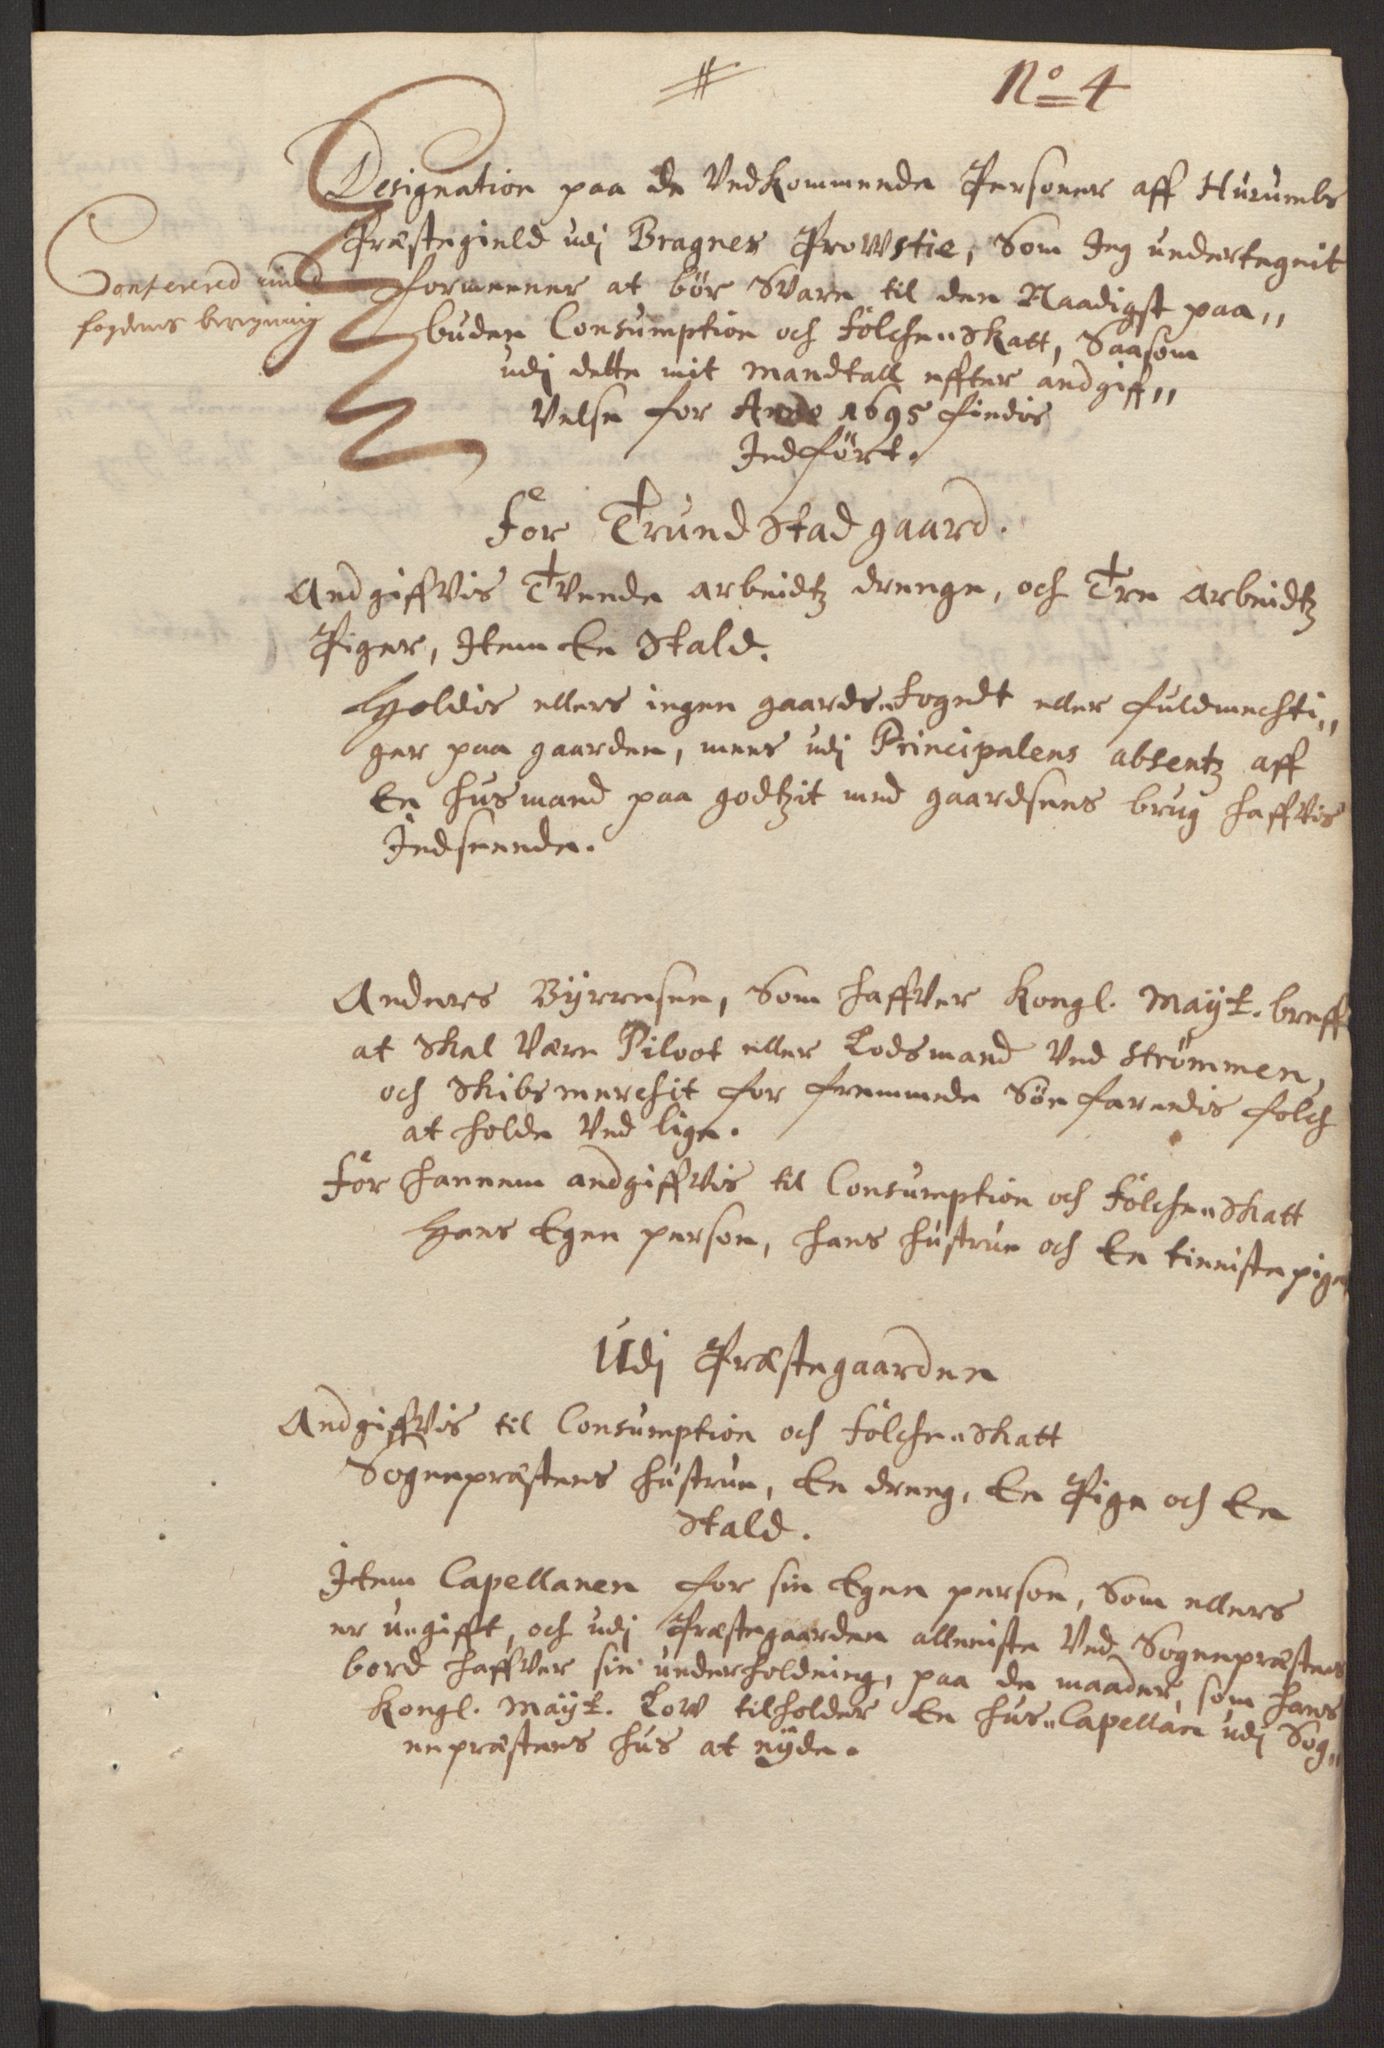 #
No 4
Designation paa de Vedkommende Personer aff Hurumbs
Præstegield udj Bragnes Prowstie, Som Jeg undertegnit
formeener at bör Svare til den Naadigst paa„
buden Consumption och Folche„Skatt, Saasom
udj dette mit mandtall effter andgiff„
velse for Anno 1695 findis
Indfört.
Confererd med
fogdens beregning
For Trundstad gaard.
Andgiffvis Tvende arbeidtz drenge, och Tre arbeidtz
Piger, Item En Stald.
Holdis ellers ingen gaards„fogedt eller fuldmechti„
ger paa gaarden, mens udj Principalens absentz aff
En husmand paa godtzit med gaardsens brug haffvis
Indseende.
Anders Byrresen, Som haffver Kongl. Mayt. breff
at Skal Være Piloot eller Lodsmand Ved Strömmen,
och Skibsmerchit for fremmede Söe farendis folch
at holde Ved lige.
For hannem andgiffvis til Consumption och Folche„Skatt
Hans Egen person, hans hustrue och En tienistepige
Udj Præstegaarden
Andgiffvis til Consumption och Folche„Skatt
Sognepræstens hustrue, En dreng, En Pige och En
Stald.
Item Capellanen for sin Egen person, Som ellers
er ungifft, och udj Præstegaarden alleniste Ved Sognepræstens
bord haffver sin underholdning, paa de maader, som hans
Kongl. Mayt. Low tilholder En hus„Capellan udj Sog„
nepræstens hus at nyde.